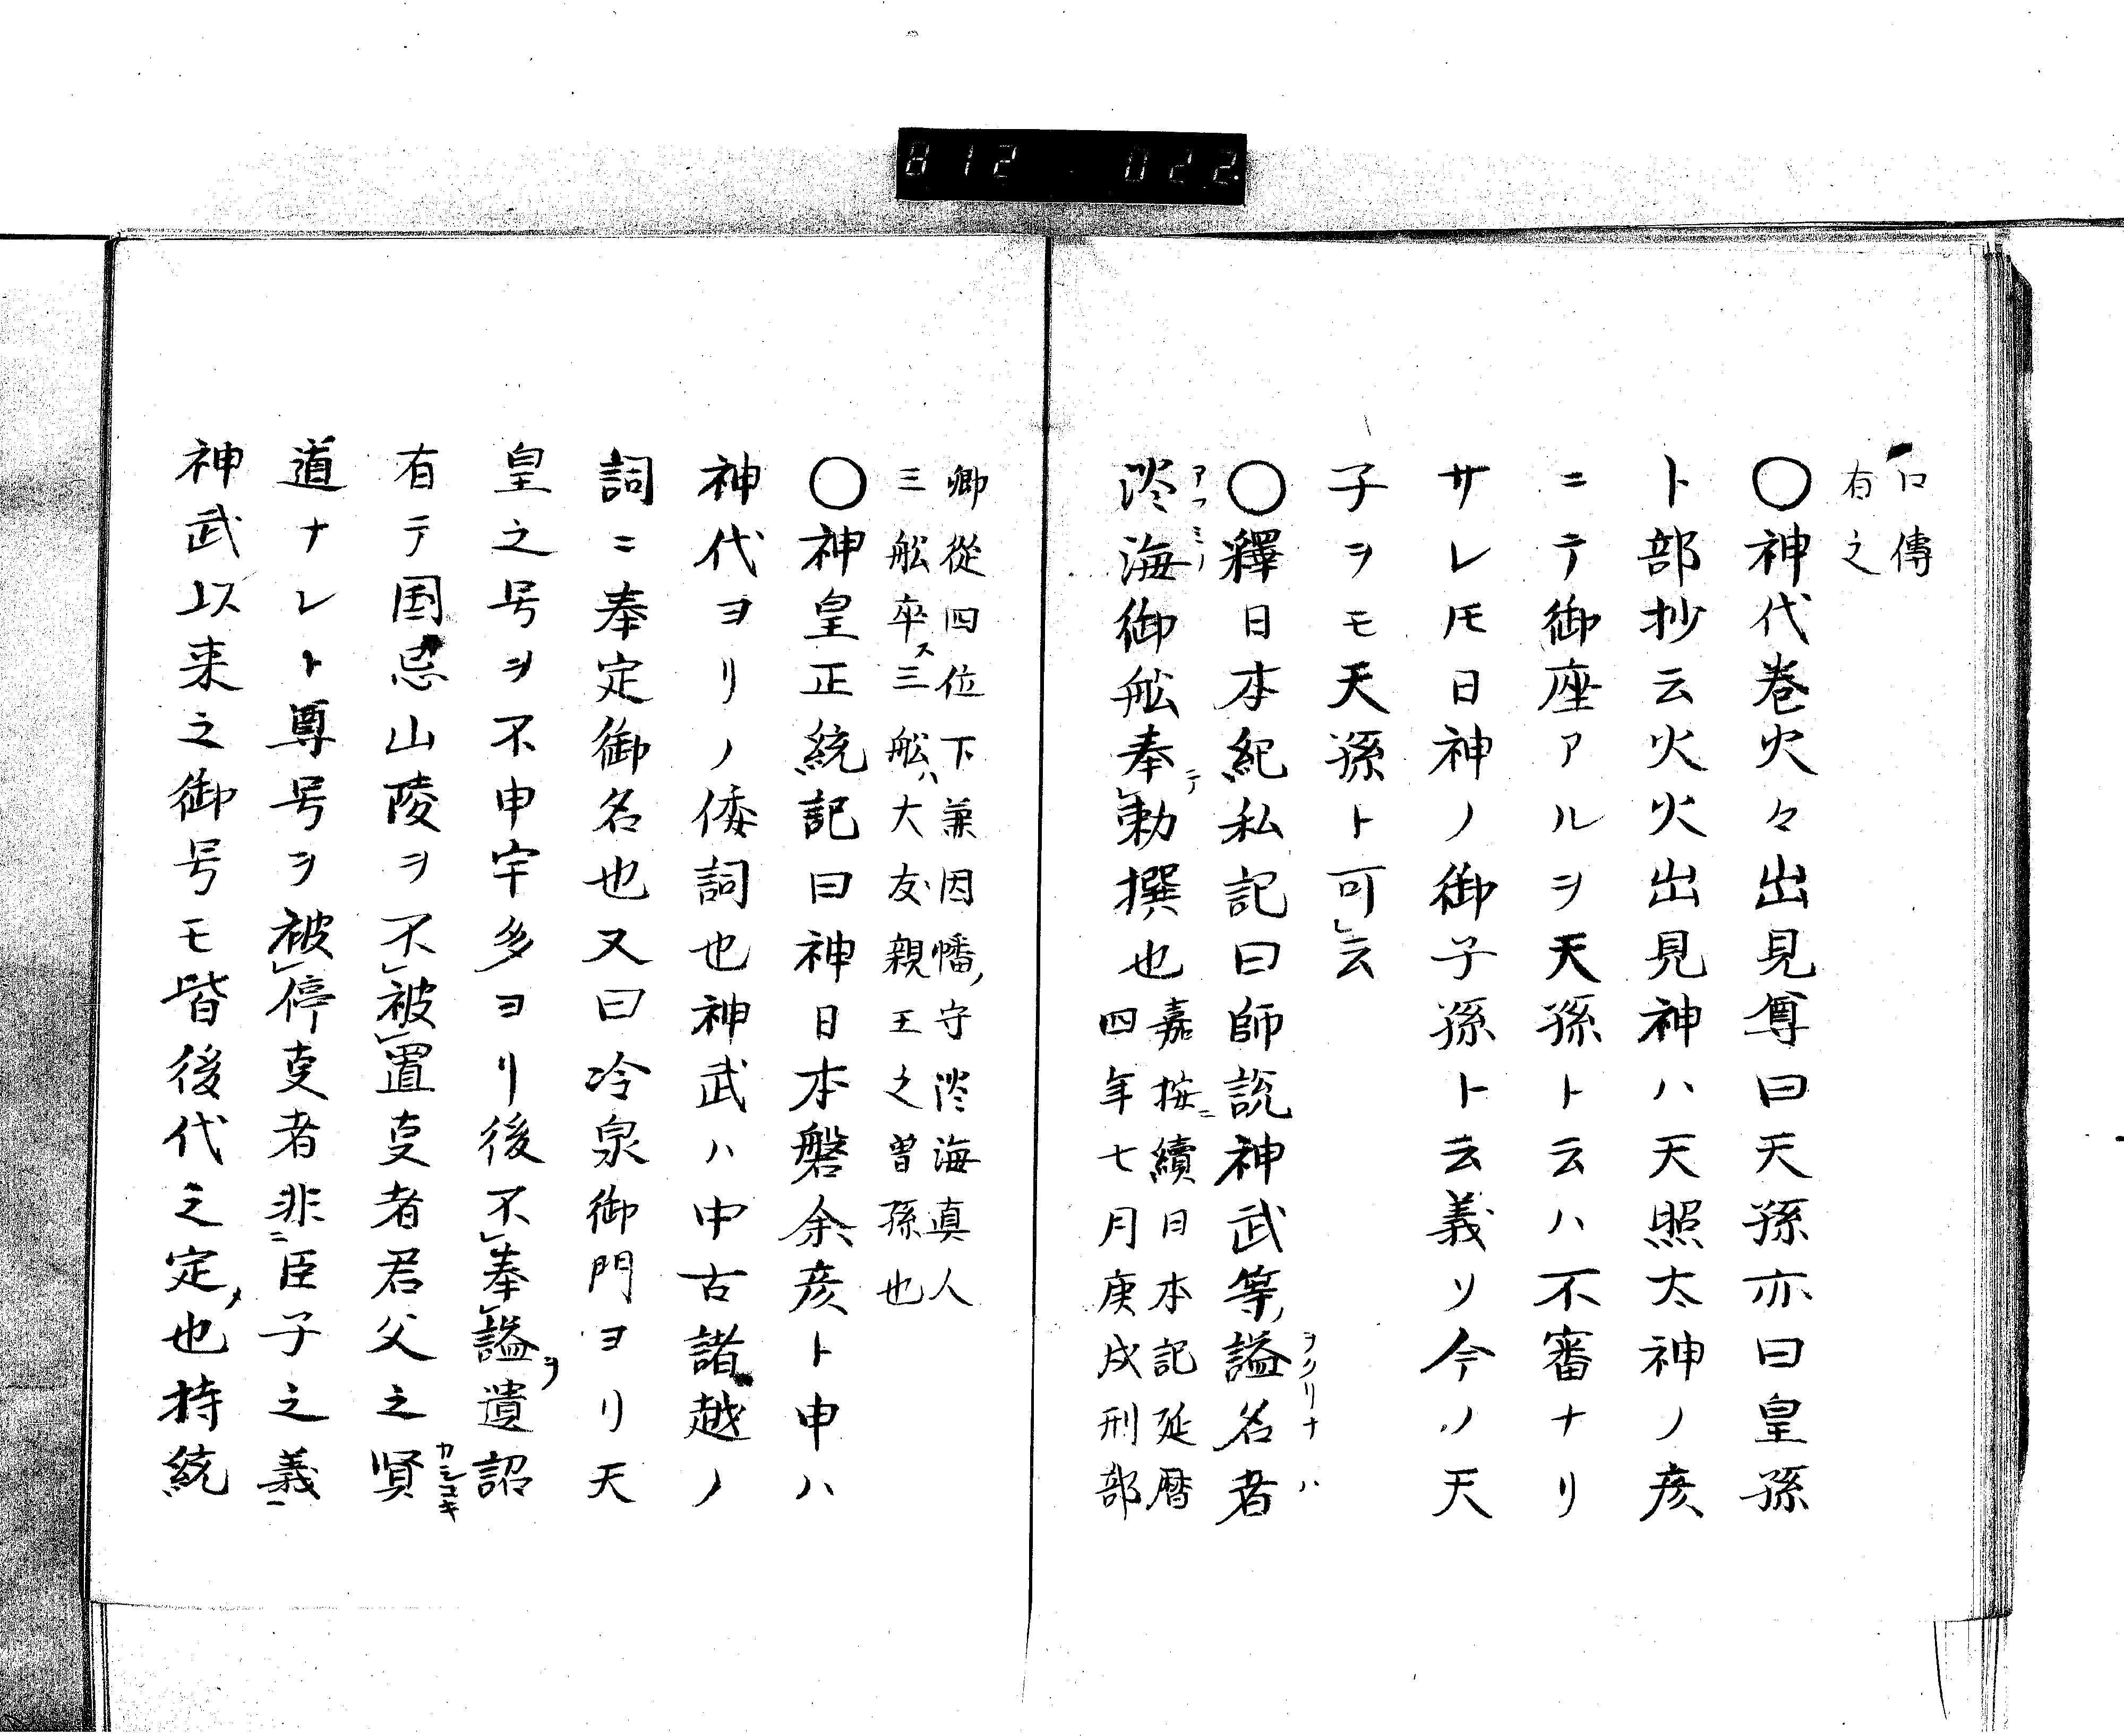 812 022.
口傳
有之
〇神代巻火々出見尊曰天孫亦曰皇孫
ト部抄云火火出見神ハ天照太神ノ彦
ニテ御座アルヲ天孫ト云ハ不審ナリ
サレ𪜈日神ノ御子孫ト云義ソ今ノ天
子ヲモ天孫ト可云
〇釋日本紀私記曰師説神武等謚名者
ヲクリナハ
淡海御舩奉勅撰也
アフミノ テ
嘉按ニ續日本記延暦
四年七月庚戌刑部
卿從四位下兼因幡守淡海真人
三舩卒ス三舩ハ大友親王之曽孫也
〇神皇正統記曰神日本磐余彦ト申ハ
神代ヨリノ倭詞也神武ハ中古諸越ノ
詞ニ奉定御名也又曰冷泉御門ヨリ天
皇之号ヲ不申宇多ヨリ後不奉謚ヲ遺詔
有テ国忌山陵ヲ不被置叓者君父之賢
カシコキ
道ナレト尊号ヲ被停叓者非ニ臣子之義ニ
神武以来之御号モ皆後代之定メ也持統